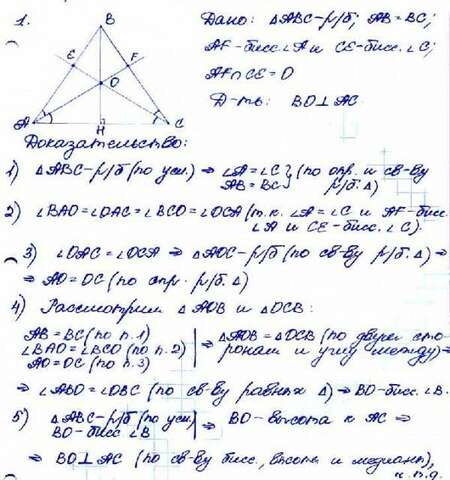 1.
B
E
F
O
A
H
C
Дано: △ABC – р/б; AB = BC;
AF – бисс. ∠A и CE – бисс. ∠C;
AF ∩ CE = O
Д-ть: BO ⊥ AC
Доказательство:
1) △ABC – р/б (по усл.) ⇒ ∠A = ∠C } (по опр. и св-ву
AB = BC } р/б. △)
2) ∠BAO = ∠OAC = ∠BCO = ∠OCA (т.к. ∠A = ∠C и AF – бисс.
∠A и CE – бисс. ∠C).
3) ∠OAC = ∠OCA ⇒ △AOC – р/б (по св-ву р/б. △) ⇒
⇒ AO = OC (по опр. р/б. △)
4) Рассмотрим △AOB и △OCB:
AB = BC (по п. 1)
∠BAO = ∠BCO (по п. 2)
AO = OC (по п. 3)
⇒ △AOB = △OCB (по двум сто-
ронам и углу между) ⇒
⇒ ∠ABO = ∠OBC (по св-ву равных △) ⇒ BO – бисс. ∠B.
5) △ABC – р/б (по усл.)
BO – бисс ∠B
⇒ BO – высота к AC ⇒
⇒ BO ⊥ AC (по св-ву бисс., высоты и медианы),
ч.т.д.